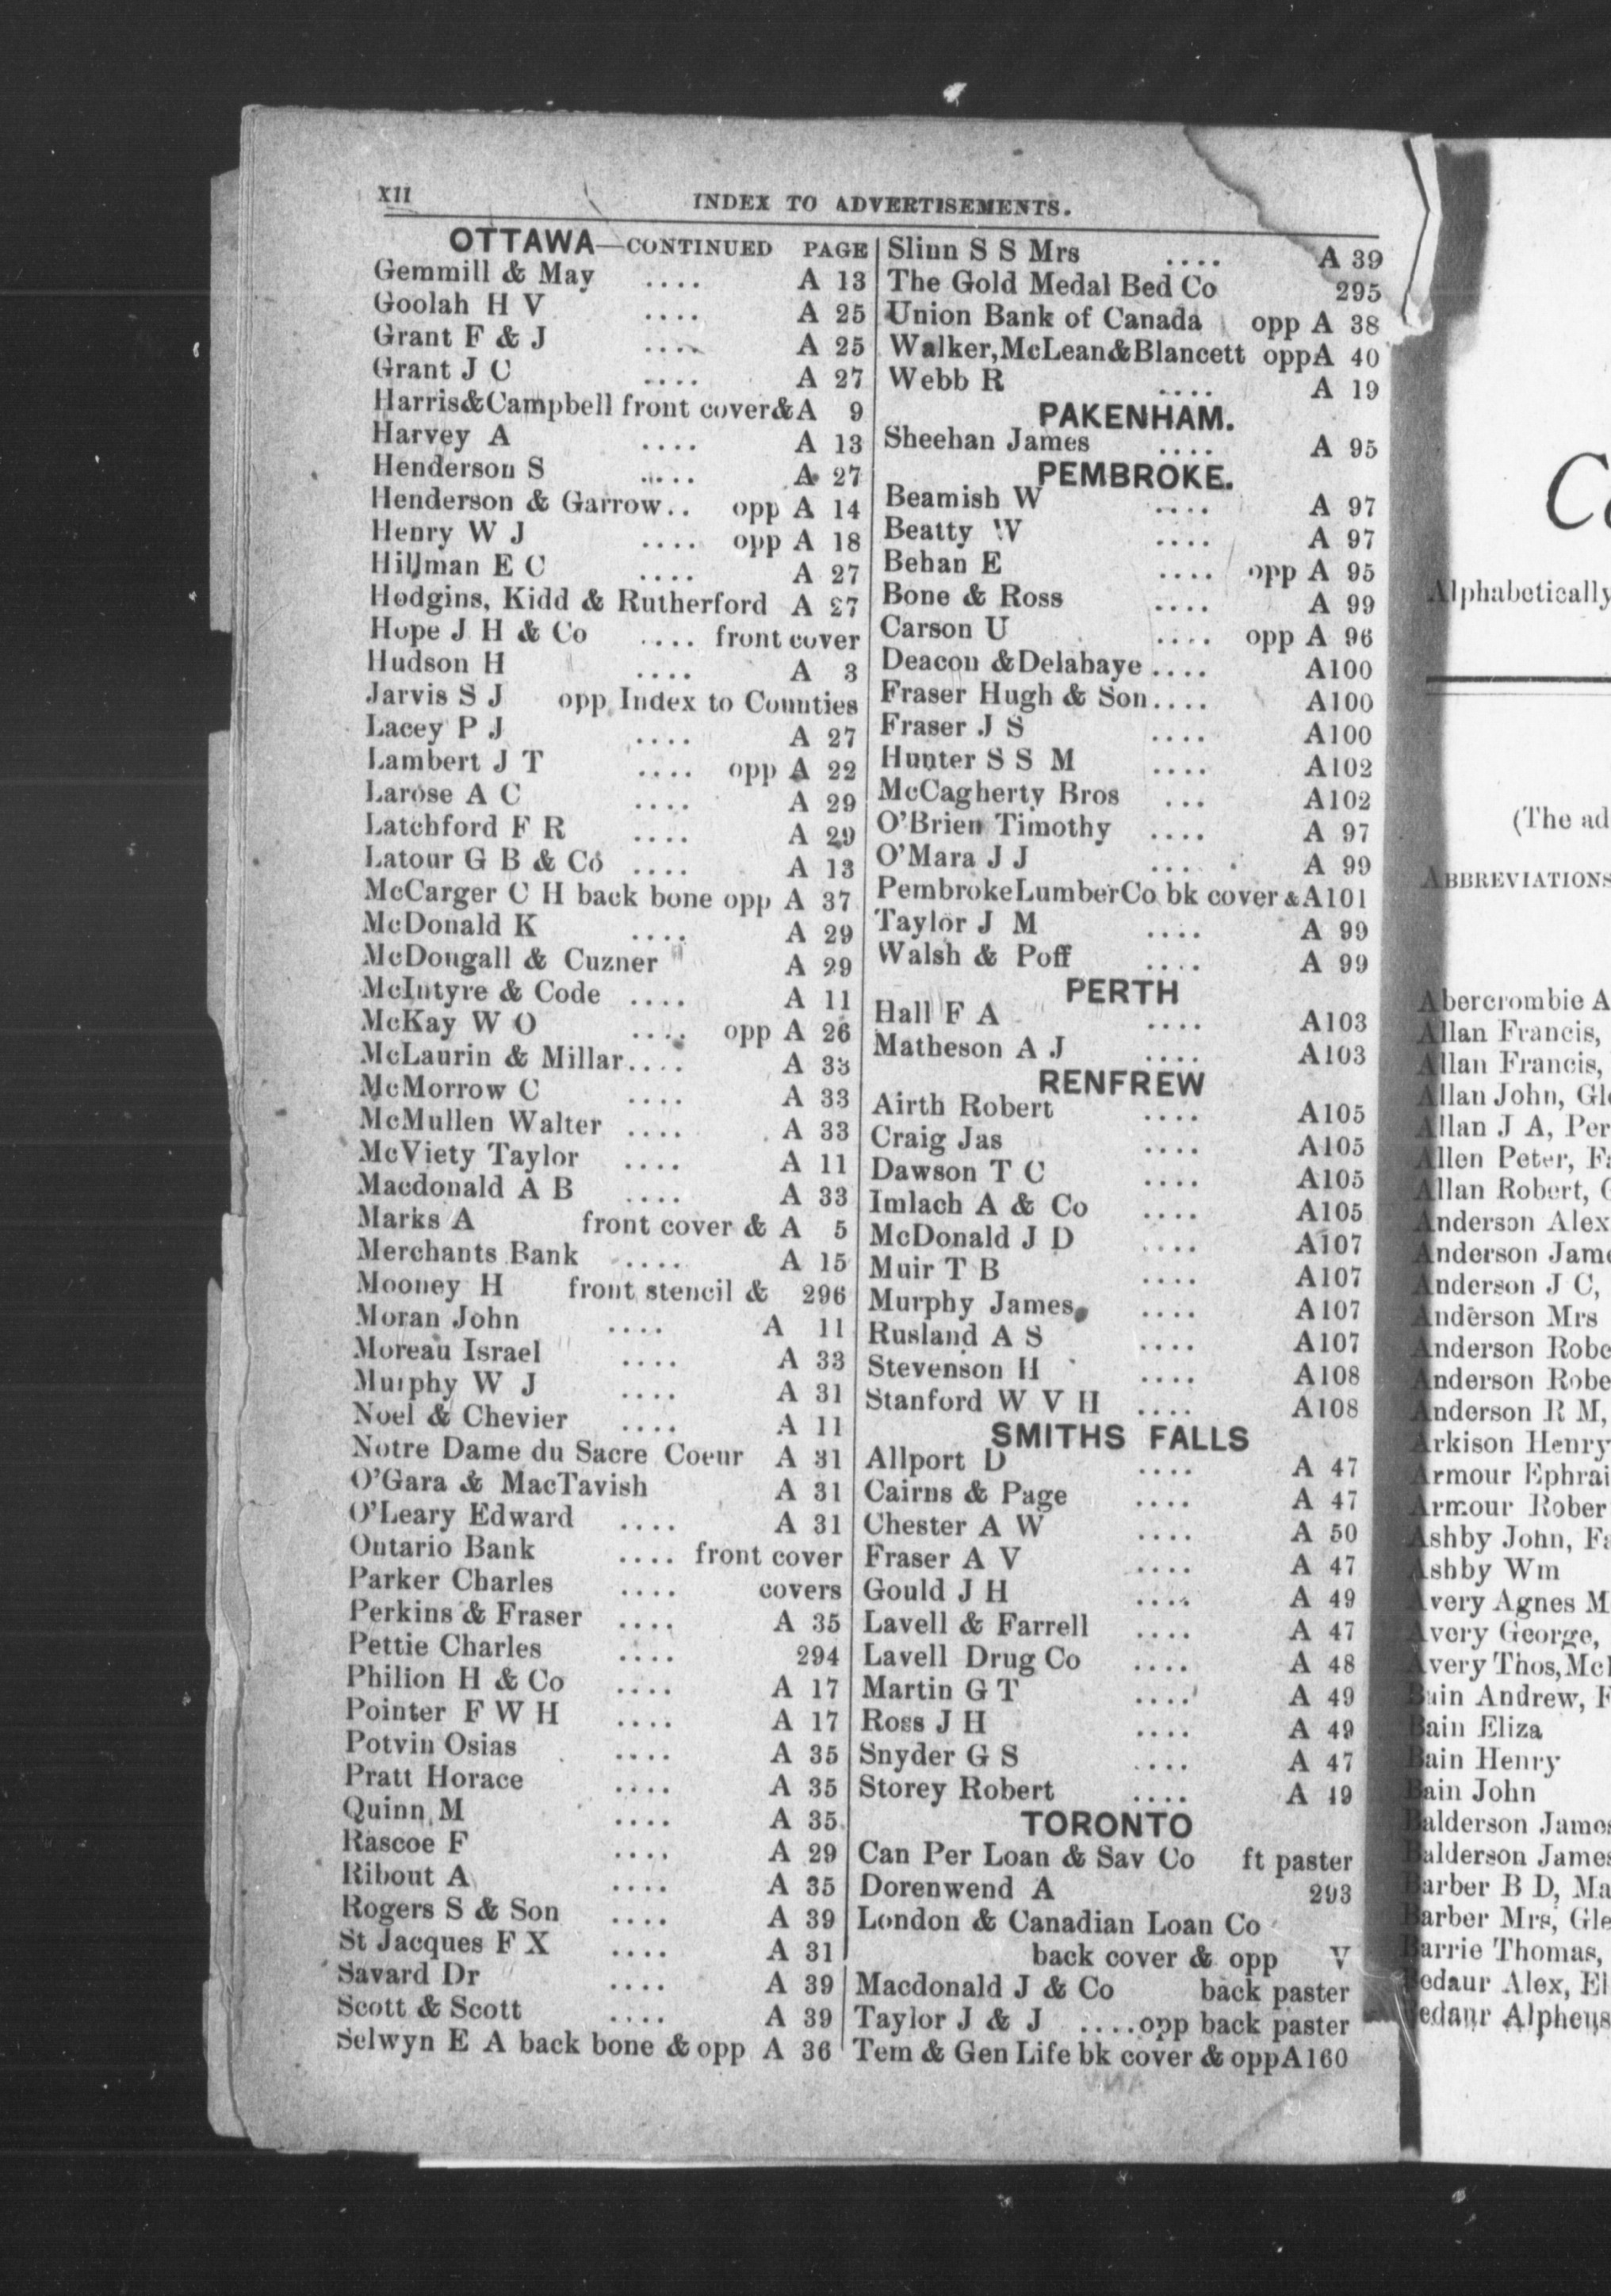 XII
INDEX TO ADVERTISEMENTS.
OTTAWA—CONTINUED PAGE
Gemmill & May .... A 13
Goolah H V .... A 25
Grant F & J .... A 25
Grant J C .... A 27
Harris&Campbell front cover&A 9
Harvey A .... A 13
Henderson S .... A 27
Henderson & Garrow.. opp A 14
Henry W J .... opp A 18
Hillman E C .... A 27
Hodgins, Kidd & Rutherford A 27
Hope J H & Co .... front cover
Hudson H .... A 3
Jarvis S J opp Index to Counties
Lacey P J .... A 27
Lambert J T .... opp A 22
Larose A C .... A 29
Latchford F R .... A 29
Latour G B & Co .... A 13
McCarger C H back bone opp A 37
McDonald K .... A 29
McDougall & Cuzner A 29
McIntyre & Code .... A 11
McKay W O .... opp A 26
McLaurin & Millar.... A 33
McMorrow C .... A 33
McMullen Walter .... A 33
McViety Taylor .... A 11
Macdonald A B .... A 33
Marks A front cover & A 5
Merchants Bank .... A 15
Mooney H front stencil & 296
Moran John .... A 11
Moreau Israel .... A 33
Murphy W J .... A 31
Noel & Chevier .... A 11
Notre Dame du Sacre Coeur A 31
O'Gara & MacTavish A 31
O'Leary Edward .... A 31
Ontario Bank .... front cover
Parker Charles .... covers
Perkins & Fraser .... A 35
Pettie Charles .... 294
Philion H & Co .... A 17
Pointer F W H .... A 17
Potvin Osias .... A 35
Pratt Horace .... A 35
Quinn M .... A 35
Rascoe F .... A 29
Ribout A .... A 35
Rogers S & Son .... A 39
St Jacques F X .... A 31
Savard Dr .... A 39
Scott & Scott .... A 39
Selwyn E A back bone & opp A 36
Slinn S S Mrs .... A 39
The Gold Medal Bed Co 295
Union Bank of Canada opp A 38
Walker,McLean&Blancett oppA 40
Webb R .... A 19
PAKENHAM.
Sheehan James .... A 95
PEMBROKE.
Beamish W .... A 97
Beatty W .... A 97
Behan E .... opp A 95
Bone & Ross .... A 99
Carson U .... opp A 96
Deacon &Delahaye .... A100
Fraser Hugh & Son.... A100
Fraser J S .... A100
Hunter S S M .... A102
McCagherty Bros ... A102
O'Brien Timothy .... A 97
O'Mara J J .... A 99
PembrokeLumberCo bk cover &A101
Taylor J M .... A 99
Walsh & Poff .... A 99
PERTH
Hall F A .... A103
Matheson A J .... A103
RENFREW
Airth Robert .... A105
Craig Jas .... A105
Dawson T C .... A105
Imlach A & Co .... A105
McDonald J D .... A107
Muir T B .... A107
Murphy James .... A107
Rusland A S .... A107
Stevenson H .... A108
Stanford W V H .... A108
SMITHS FALLS
Allport D .... A 47
Cairns & Page .... A 47
Chester A W .... A 50
Fraser A V .... A 47
Gould J H .... A 49
Lavell & Farrell .... A 47
Lavell Drug Co .... A 48
Martin G T .... A 49
Ross J H .... A 49
Snyder G S .... A 47
Storey Robert .... A 49
TORONTO
Can Per Loan & Sav Co ft paster
Dorenwend A 293
London & Canadian Loan Co
back cover & opp V
Macdonald J & Co back paster
Taylor J & J ....opp back paster
Tem & Gen Life bk cover & oppA160
Alphabetically
(The ad
ABBREVIATIONS
Abercrombie A
Allan Francis,
Allan Francis,
Allan John, Gle
Allan J A, Per
Allen Peter, Fa
Allan Robert, G
Anderson Alex
Anderson Jame
Anderson J C,
Anderson Mrs
Anderson Robe
Anderson Robe
Anderson R M,
Arkison Henry
Armour Ephrai
Armour Rober
Ashby John, Fa
Ashby Wm
Avery Agnes M
Avery George,
Avery Thos, Mc
Bain Andrew, F
Bain Eliza
Bain Henry
Bain John
Balderson James
Balderson James
Barber B D, Ma
Barber Mrs, Gle
Barrie Thomas,
Bedaur Alex, El
Bedaur Alpheus